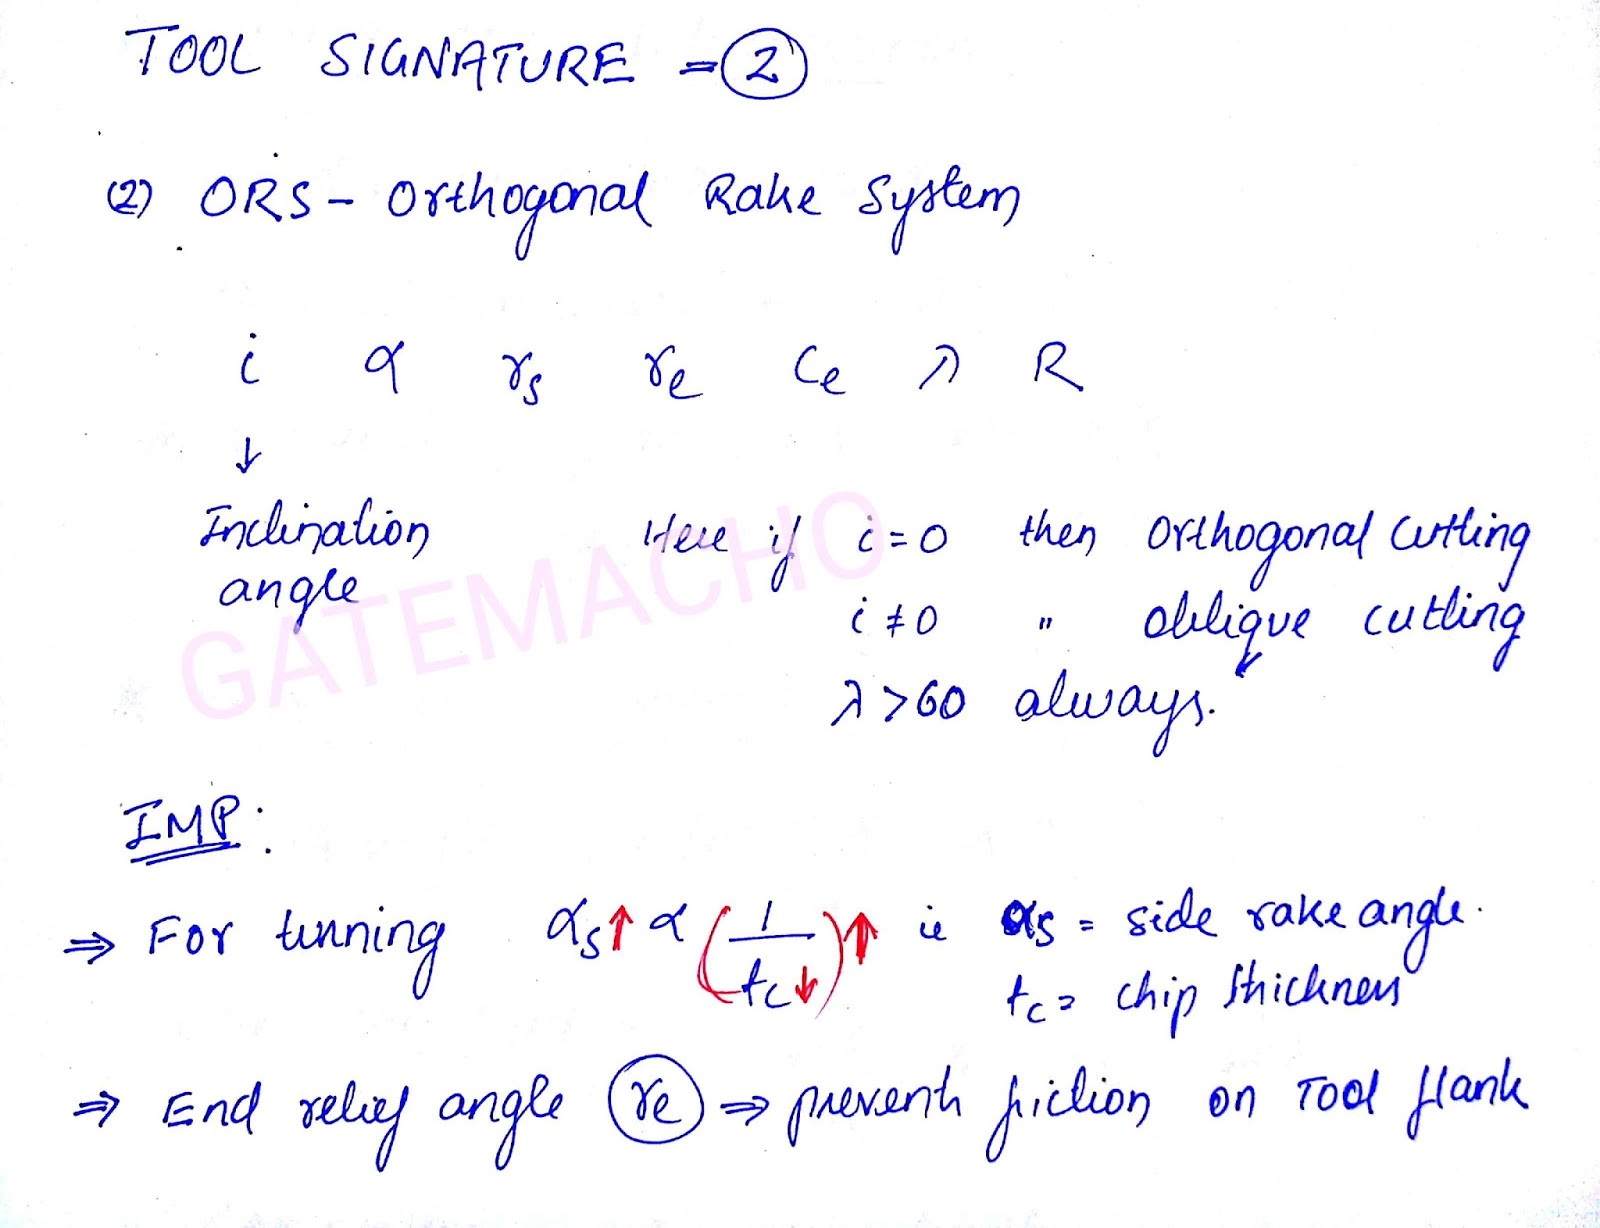 TOOL SIGNATURE - ②
(2) ORS - Orthogonal Rake System
i α γs γe Ce λ R
↓
Inclination angle
Here if i = 0 then orthogonal cutting
i ≠ 0 " oblique cutting
λ > 60 always.
GATEMACHO
IMP:
⇒ For turning αs↑ α (1/tc↓)↑ ie αs = side rake angle.
tc = chip thickness
⇒ End relief angle (γe) ⇒ prevent friction on Tool flank